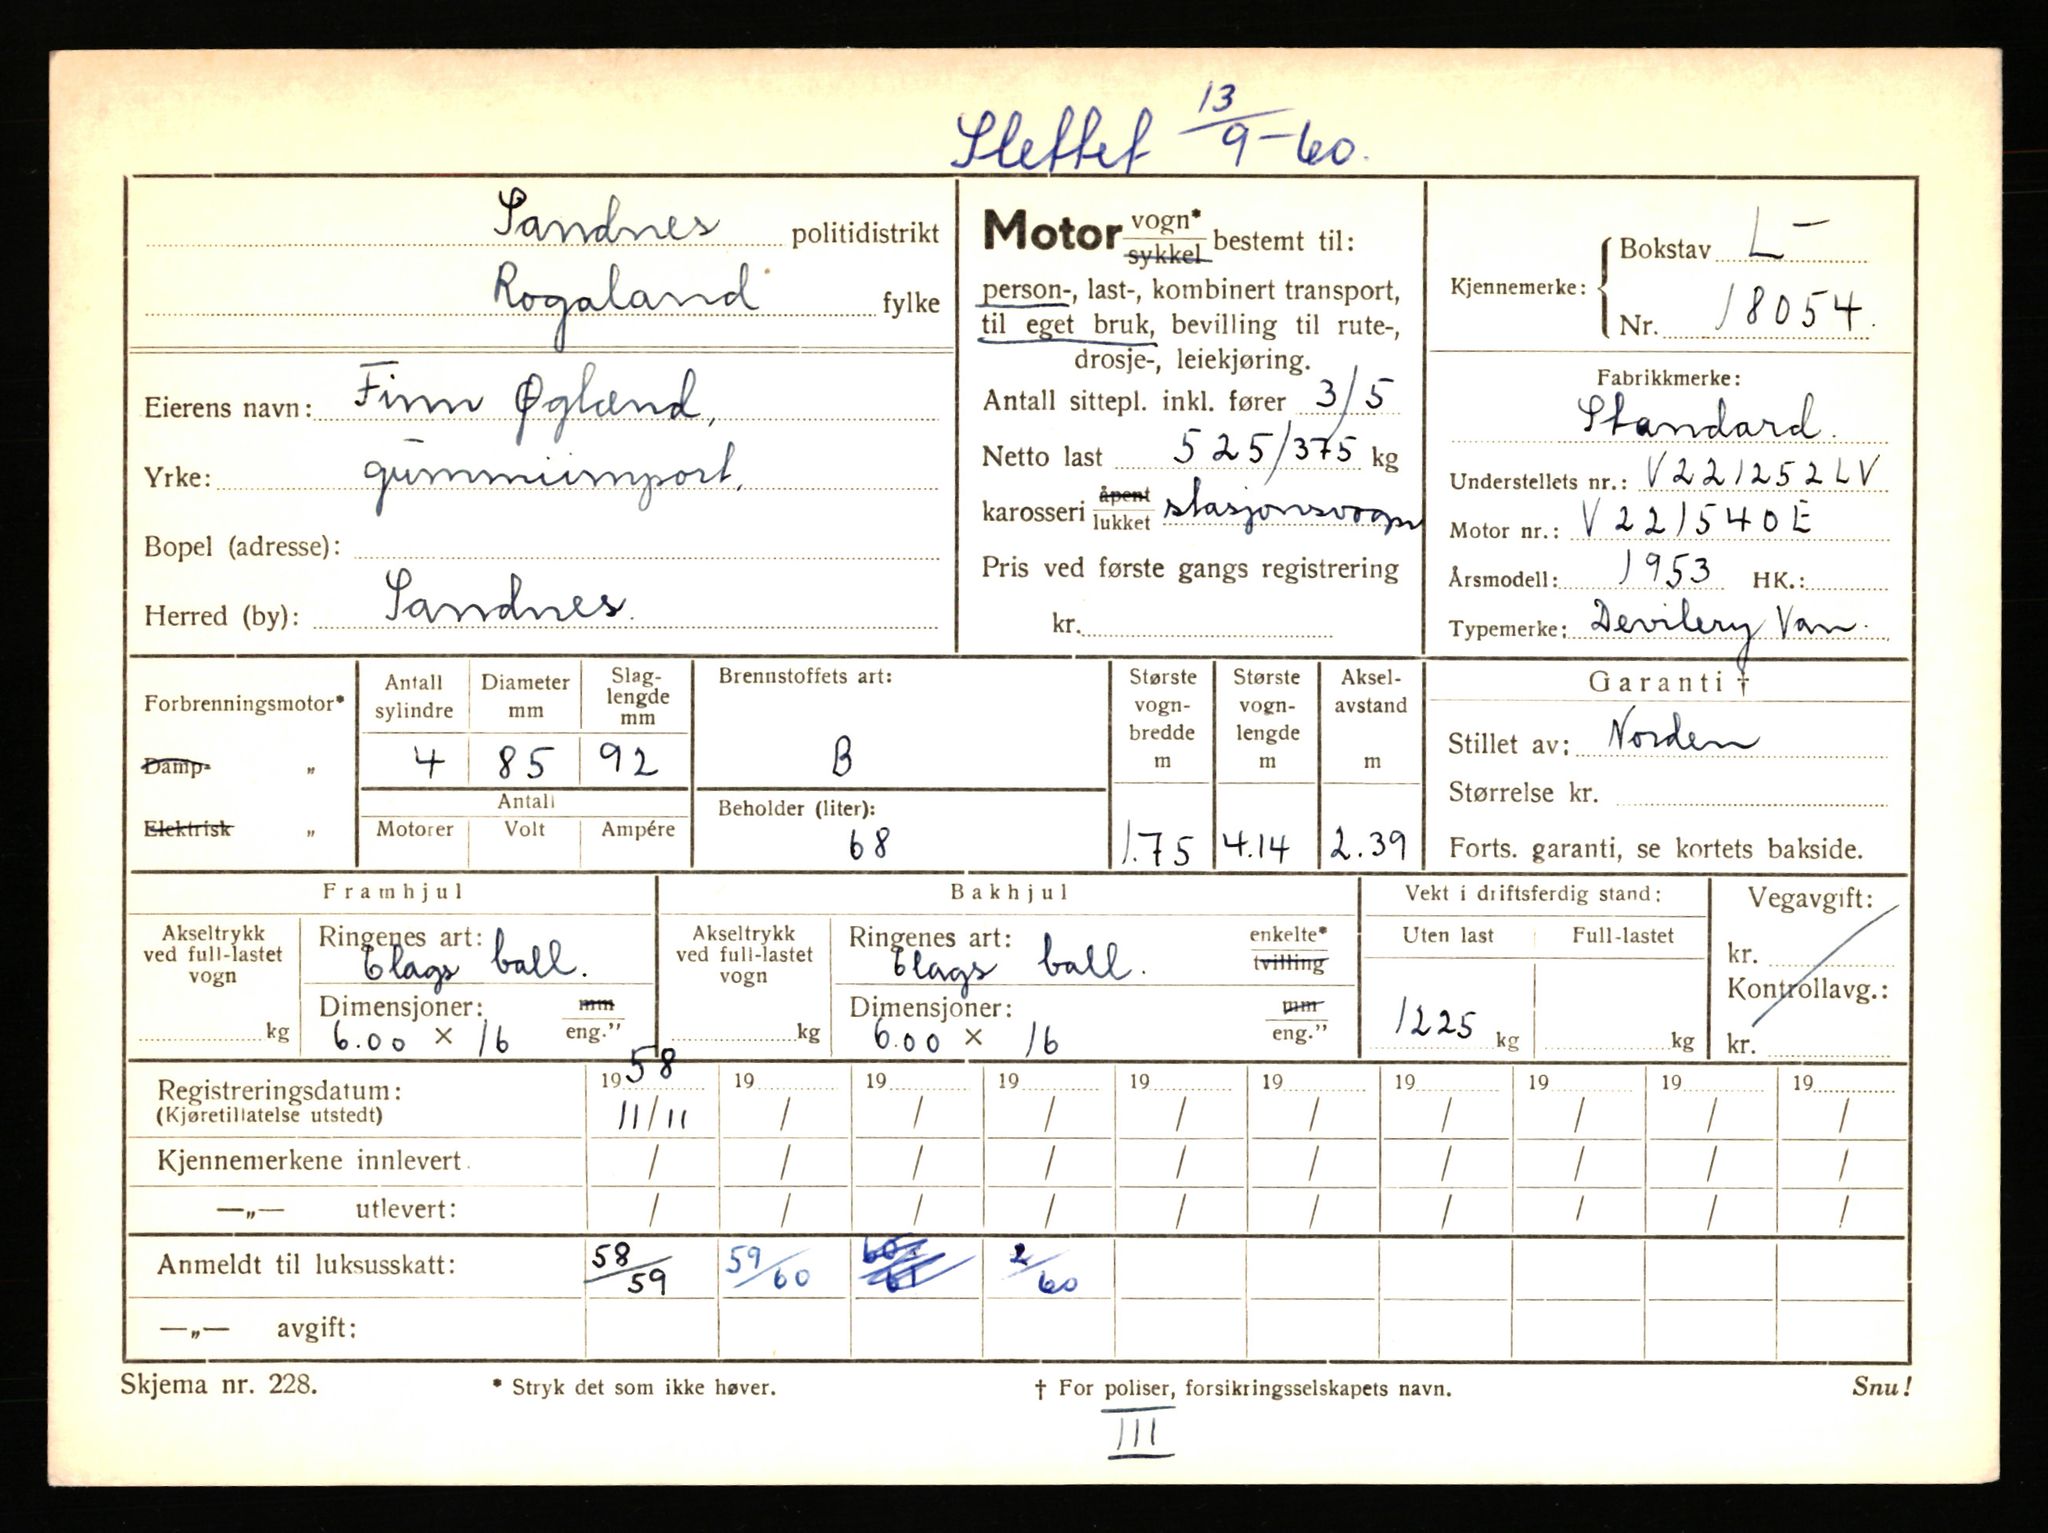 Slettet 13/9-60.
Sandnes politidistrikt
Rogaland fylke
Eierens navn: Finn Øglænd,
Yrke: gummiimport,
Bopel (adresse):
Herred (by): Sandnes.
Motor vogn* / sykkel bestemt til:
person-, last-, kombinert transport,
til eget bruk, bevilling til rute-,
drosje-, leiekjøring.
Antall sittepl. inkl. fører 3/5
Netto last 525/375 kg
karosseri åpent / lukket stasjonsvogn
Pris ved første gangs registrering
kr.
Kjennemerke: Bokstav L-
Nr. 18054.
Fabrikkmerke:
Standard.
Understellets nr.: V221252LV
Motor nr.: V221540E
Årsmodell: 1953 HK.:
Typemerke: Devilery Van.
Forbrenningsmotor*
Damp- „
Elektrisk „
Antall sylindre Diameter mm Slag-lengde mm
4 85 92
Antall
Motorer Volt Ampére
Brennstoffets art:
B
Beholder (liter):
68
Største vogn-bredde m
1.75
Største vogn-lengde m
4.14
Aksel-avstand m
2.39
Garanti †
Stillet av: Norden
Størrelse kr.
Forts. garanti, se kortets bakside.
Framhjul
Akseltrykk ved full-lastet vogn
kg
Ringenes art:
6lags ball.
Dimensjoner: mm / eng.”
6.00 × 16
Bakhjul
Akseltrykk ved full-lastet vogn
kg
Ringenes art: enkelte* / tvilling
6lags ball.
Dimensjoner: mm / eng.”
6.00 × 16
Vekt i driftsferdig stand:
Uten last Full-lastet
1225 kg kg
Vegavgift:
kr.
Kontrollavg.:
kr.
Registreringsdatum: 1958 19 19 19 19 19 19 19 19 19
(Kjøretillatelse utstedt) 11/11 / / / / / / / / /
Kjennemerkene innlevert. / / / / / / / / / /
—„— utlevert: / / / / / / / / / /
Anmeldt til luksusskatt: 58/59 59/60 60/61 2/60
—„— avgift:
Skjema nr. 228. * Stryk det som ikke høver. † For poliser, forsikringsselskapets navn. Snu!
III